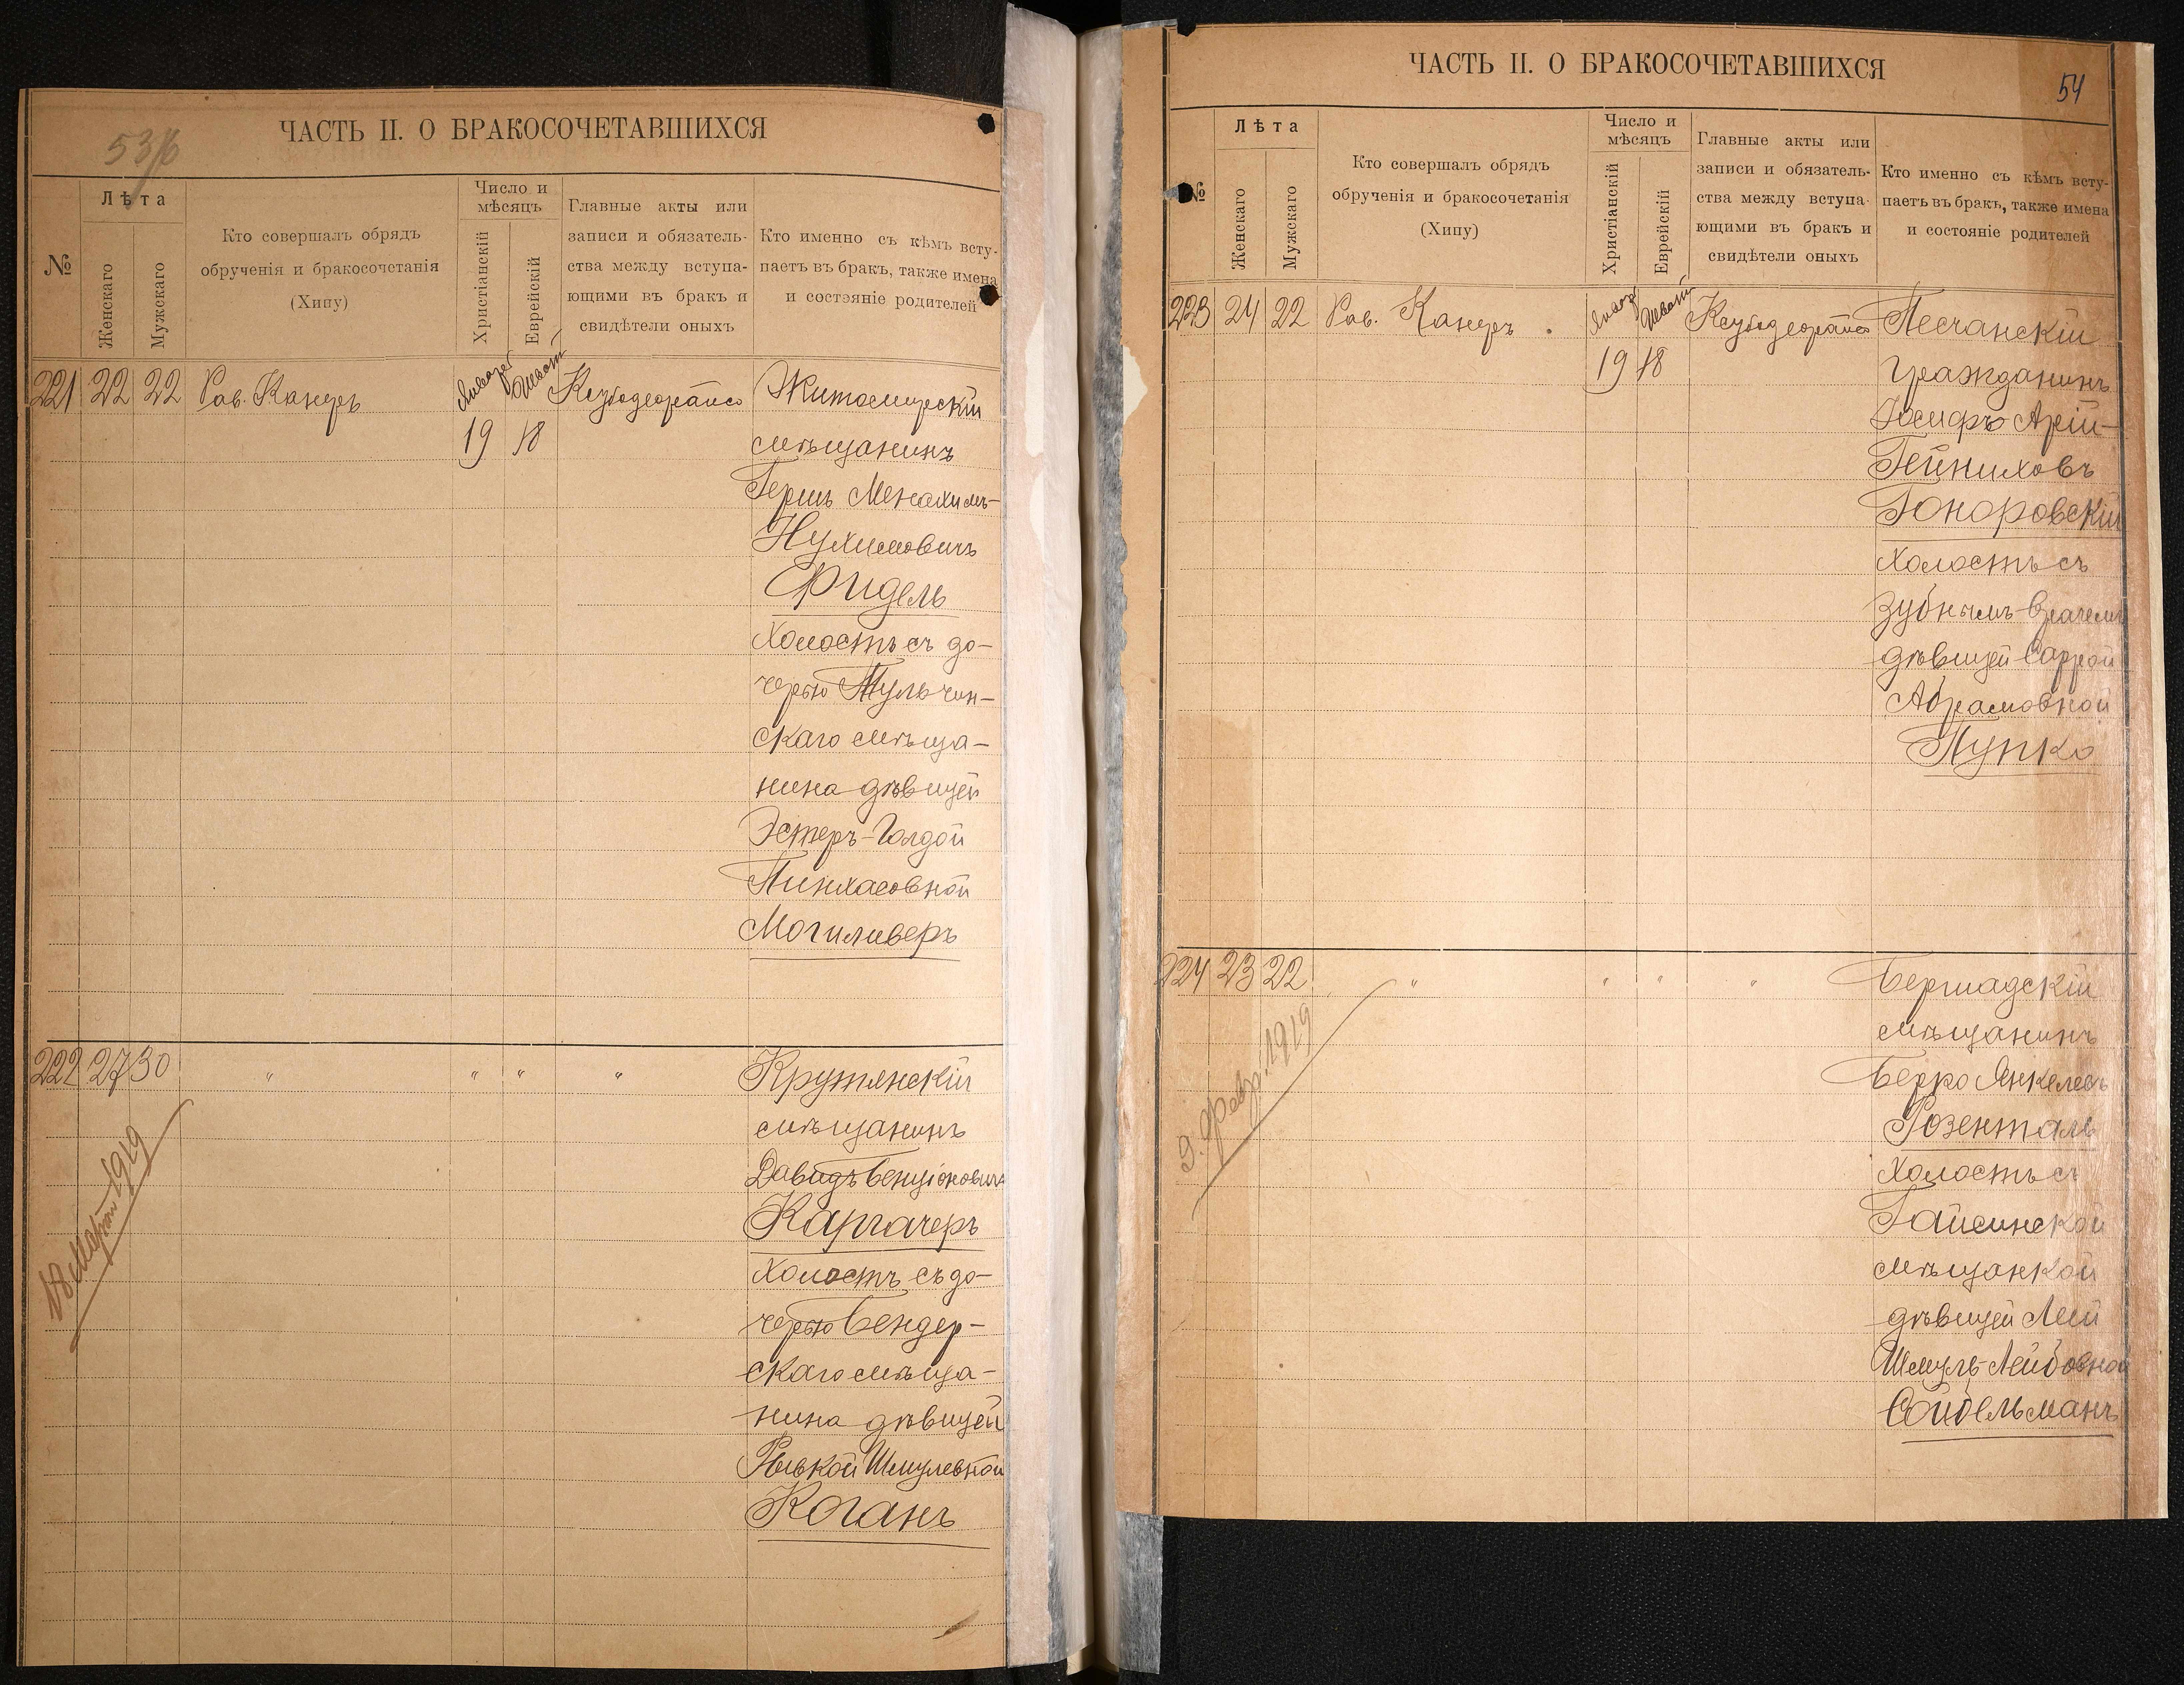 53/6
ЧАСТЬ II. О БРАКОСОЧЕТАВШИХСЯ
№
Лѣта
Женскаго
Мужскаго
Кто совершалъ обрядъ
обрученія и бракосочетанія
(Хипу)
Число и
мѣсяцъ
Христіанскій
Еврейскій
Главные акты или
записи и обязатель-
ства между вступа-
ющими въ бракъ и
свидѣтели оныхъ
Кто именно съ кѣмъ всту-
паетъ въ бракъ, также имена
и состояніе родителей
221 22 22 Рав. Канеръ Январь Шватъ Житомирскій
19 18 мѣщанинъ
Гершъ Менахимъ-
Нухимовичъ
Фидель
Холостъ съ до-
черью Тульчин-
скаго мѣща-
нина дѣвицей
Эстеръ-Голдой
Пинхасовной
Могиливеръ
222 27 30 " " " " Крутянскій
мѣщанинъ
Давидъ Бенціоновичъ
Каргачеръ
Холостъ съ до-
черью Бендер-
скаго мѣща-
нина дѣвицей
Рывкой Шмулевной
Коганъ
18 1919
ЧАСТЬ II. О БРАКОСОЧЕТАВШИХСЯ
54
№
Лѣта
Женскаго
Мужскаго
Кто совершалъ обрядъ
обрученія и бракосочетанія
(Хипу)
Число и
мѣсяцъ
Христіанскій
Еврейскій
Главные акты или
записи и обязатель-
ства между вступа-
ющими въ бракъ и
свидѣтели оныхъ
Кто именно съ кѣмъ всту-
паетъ въ бракъ, также имена
и состояніе родителей
223 24 22 Рав. Канеръ Январь Шватъ Песчанскій
19 18 Гражданинъ
Іосифъ Арій-
Гейниховъ
Гоноровскій
Холостъ съ
Зубнымъ-Врачемъ
дѣвицей Саррой
Абрамовной
Пупко
224 23 22 " " " " Бершадскій
мѣщанинъ
Берко Янкелевъ
Розенталь
Холостъ съ
Гайсинской
мѣщанкой
дѣвицей Леей
Шмуль-Лейбовной
Сойбельманъ
9. февр. 1919